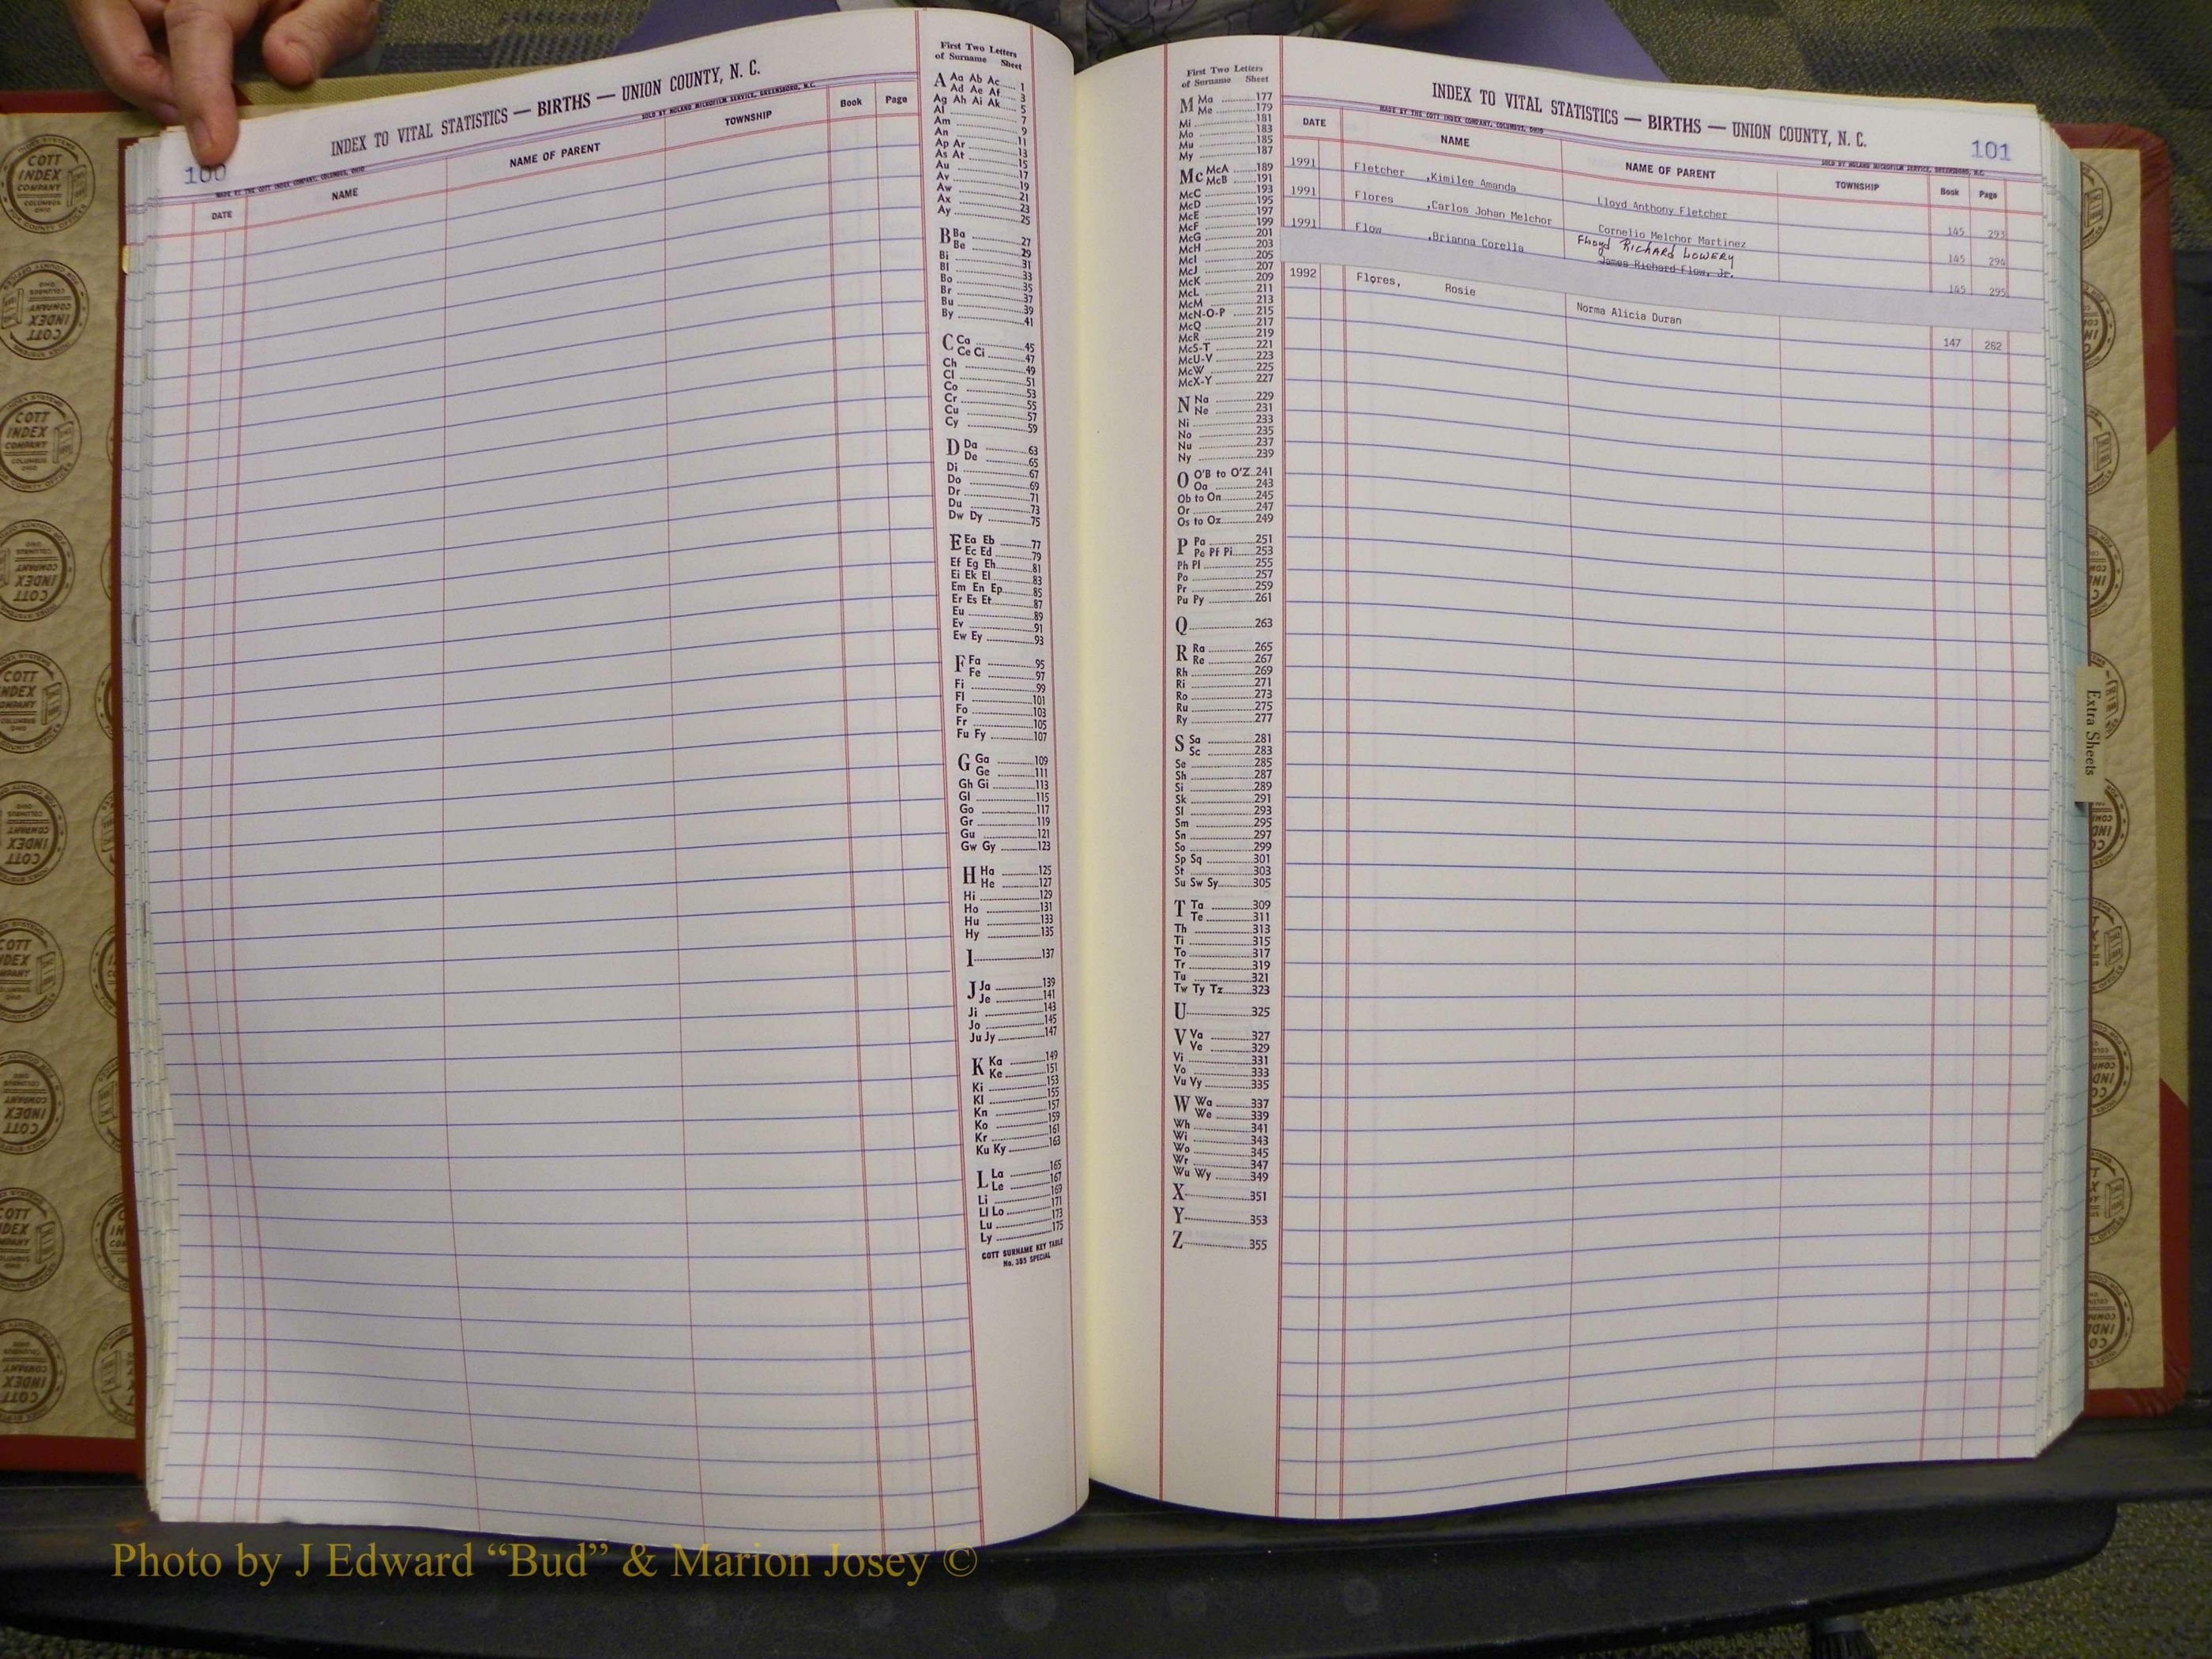 100
INDEX TO VITAL STATISTICS — BIRTHS — UNION COUNTY, N. C.
MADE BY THE COTT INDEX COMPANY, COLUMBUS, OHIO
SOLD BY NOLAND MICROFILM SERVICE, GREENSBORO, N.C.
DATE NAME NAME OF PARENT TOWNSHIP Book Page
First Two Letters
of Surname Sheet
A Aa Ab Ac 1
Ad Ae Af 3
Ag Ah Ai Ak 5
Al 7
Am 9
An 11
Ap Ar 13
As At 15
Au 17
Av 19
Aw 21
Ax 23
Ay 25
B Ba 27
Be 29
Bi 31
Bl 33
Bo 35
Br 37
Bu 39
By 41
C Ca 45
Ce Ci 47
Ch 49
Cl 51
Co 53
Cr 55
Cu 57
Cy 59
D Da 63
De 65
Di 67
Do 69
Dr 71
Du 73
Dw Dy 75
E Ea Eb 77
Ec Ed 79
Ef Eg Eh 81
Ei Ek El 83
Em En Ep 85
Er Es Et 87
Eu 89
Ev 91
Ew Ey 93
F Fa 95
Fe 97
Fi 99
Fl 101
Fo 103
Fr 105
Fu Fy 107
G Ga 109
Ge 111
Gh Gi 113
Gl 115
Go 117
Gr 119
Gu 121
Gw Gy 123
H Ha 125
He 127
Hi 129
Ho 131
Hu 133
Hy 135
I 137
J Ja 139
Je 141
Ji 143
Jo 145
Ju Jy 147
K Ka 149
Ke 151
Ki 153
Kl 155
Kn 157
Ko 159
Kr 161
Ku Ky 163
L La 165
Le 167
Li 169
Ll Lo 171
Lu 173
Ly 175
COTT SURNAME KEY TABLE
No. 355 SPECIAL
First Two Letters
of Surname Sheet
M Ma 177
Me 179
Mi 181
Mo 183
Mu 185
My 187
Mc McA 189
McB 191
McC 193
McD 195
McE 197
McF 199
McG 201
McH 203
McI 205
McJ 207
McK 209
McL 211
McM 213
McN-O-P 215
McQ 217
McR 219
McS-T 221
McU-V 223
McW 225
McX-Y 227
N Na 229
Ne 231
Ni 233
No 235
Nu 237
Ny 239
O O'B to O'Z 241
Oa 243
Ob to On 245
Or 247
Os to Oz 249
P Pa 251
Pe Pf Pi 253
Ph Pl 255
Po 257
Pr 259
Pu Py 261
Q 263
R Ra 265
Re 267
Rh 269
Ri 271
Ro 273
Ru 275
Ry 277
S Sa 281
Sc 283
Se 285
Sh 287
Si 289
Sk 291
Sl 293
Sm 295
Sn 297
So 299
Sp Sq 301
St 303
Su Sw Sy 305
T Ta 309
Te 311
Th 313
Ti 315
To 317
Tr 319
Tu 321
Tw Ty Tz 323
U 325
V Va 327
Ve 329
Vi 331
Vo 333
Vu Vy 335
W Wa 337
We 339
Wh 341
Wi 343
Wo 345
Wr 347
Wu Wy 349
X 351
Y 353
Z 355
INDEX TO VITAL STATISTICS — BIRTHS — UNION COUNTY, N. C.
101
MADE BY THE COTT INDEX COMPANY, COLUMBUS, OHIO
SOLD BY NOLAND MICROFILM SERVICE, GREENSBORO, N.C.
DATE NAME NAME OF PARENT TOWNSHIP Book Page
1991 Fletcher ,Kimilee Amanda Lloyd Anthony Fletcher 145 293
1991 Flores ,Carlos Johan Melchor Cornelio Melchor Martinez 145 294
Floyd Richard Lowery
1991 Flow ,Brianna Corella James Richard Flow, Jr. 145 295
1992 Flores, Rosie Norma Alicia Duran 147 262
Extra Sheets
COTT
INDEX
COMPANY
COLUMBUS
OHIO
Photo by J Edward “Bud” & Marion Josey ©